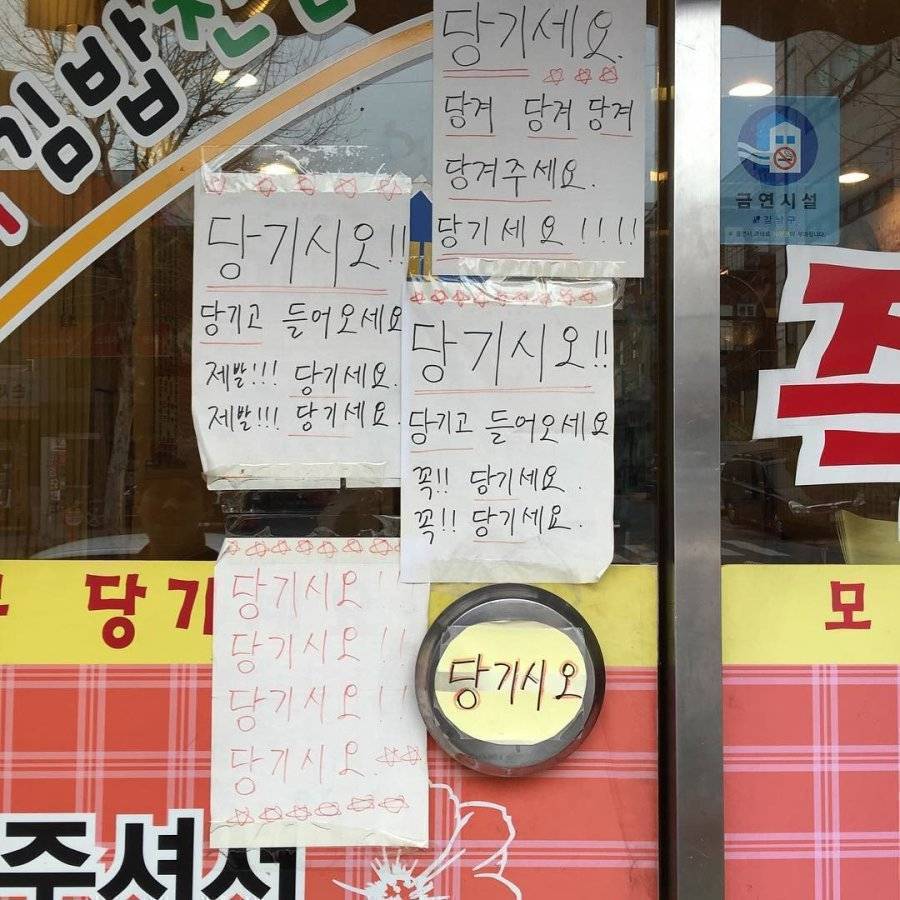 김밥천
당기세요.
당겨 당겨 당겨
당겨주세요.
당기세요!!!!
금연시설
강남구
당기시오!!
당기고 들어오세요
제발!!! 당기세요.
제발!!! 당기세요.
당기시오!!
당기고 들어오세요
꼭!! 당기세요.
꼭!! 당기세요.
당기시오!!
당기시오!!
당기시오!!
당기시오.
당기시오
당기
모
주셔서